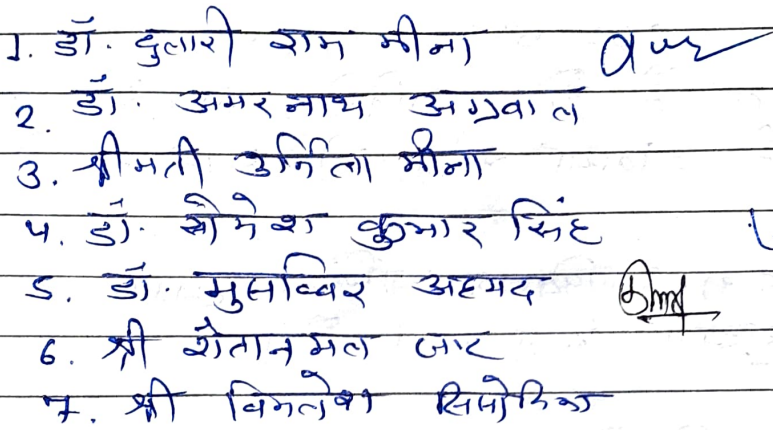 1. डॉ. दुलारी राम मीना
2. डॉ. अमर नाथ अग्रवाल
3. श्रीमती उर्मिला मीना
4. डॉ. सोमेश कुमार सिंह
5. डॉ. मुसव्विर अहमद
6. श्री शैतान मल जाट
7. श्री विमलेश